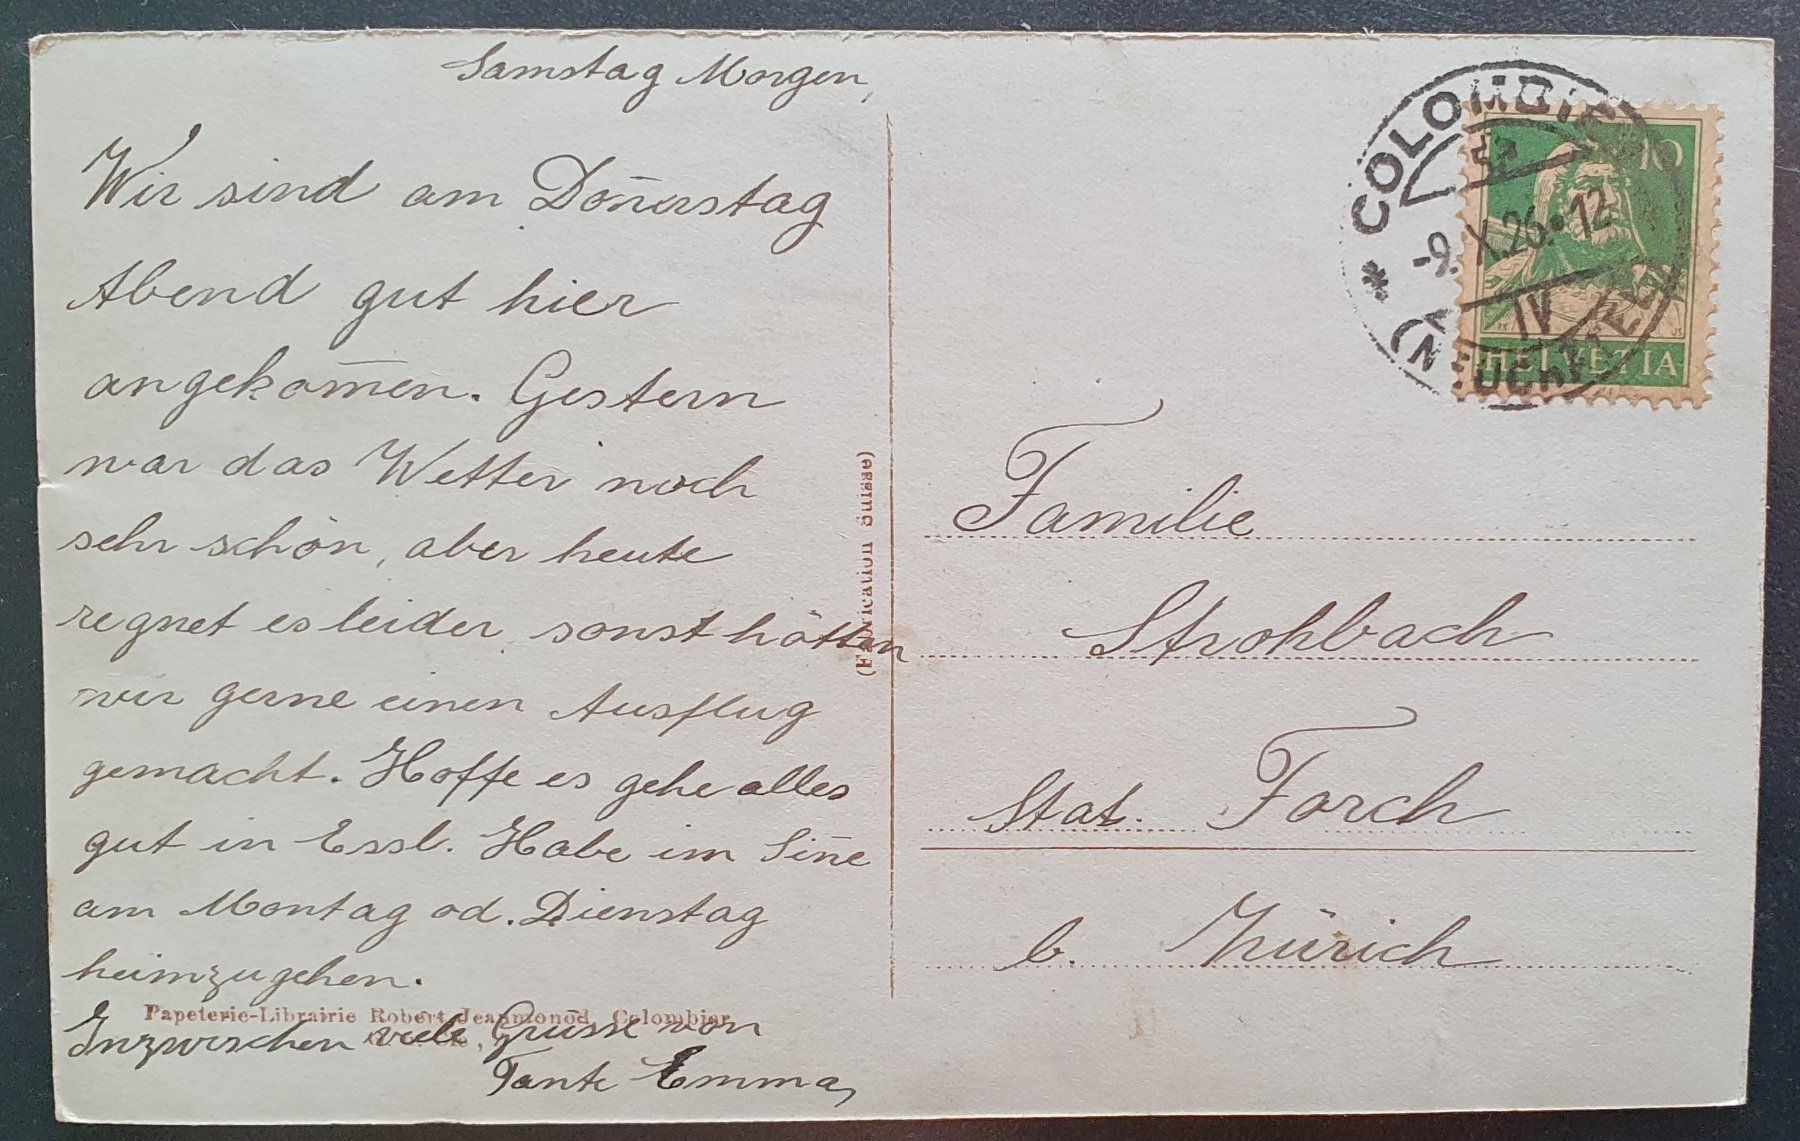 Samstag Morgen,
Wir sind am Doñerstag
Abend gut hier
angekom̄en. Gestern
war das Wetter noch
sehr schön, aber heute
regnet es leider, sonst hätten
wir gerne einen Ausflug
gemacht. Hoffe es gehe alles
gut in Essl. Habe im Siñe
am Montag od. Dienstag
heimzugehen.
Inzwischen viele Grüsse von
Tante Emma,
Papeterie-Librairie Robert Jeanmonod, Colombier
(Fabrication Suisse)
COLOMBIER
-9.X.26.•12
IV
(NEUCHÂTEL)
10
HELVETIA
Familie
Strohbach
Stat. Forch
b. Zürich